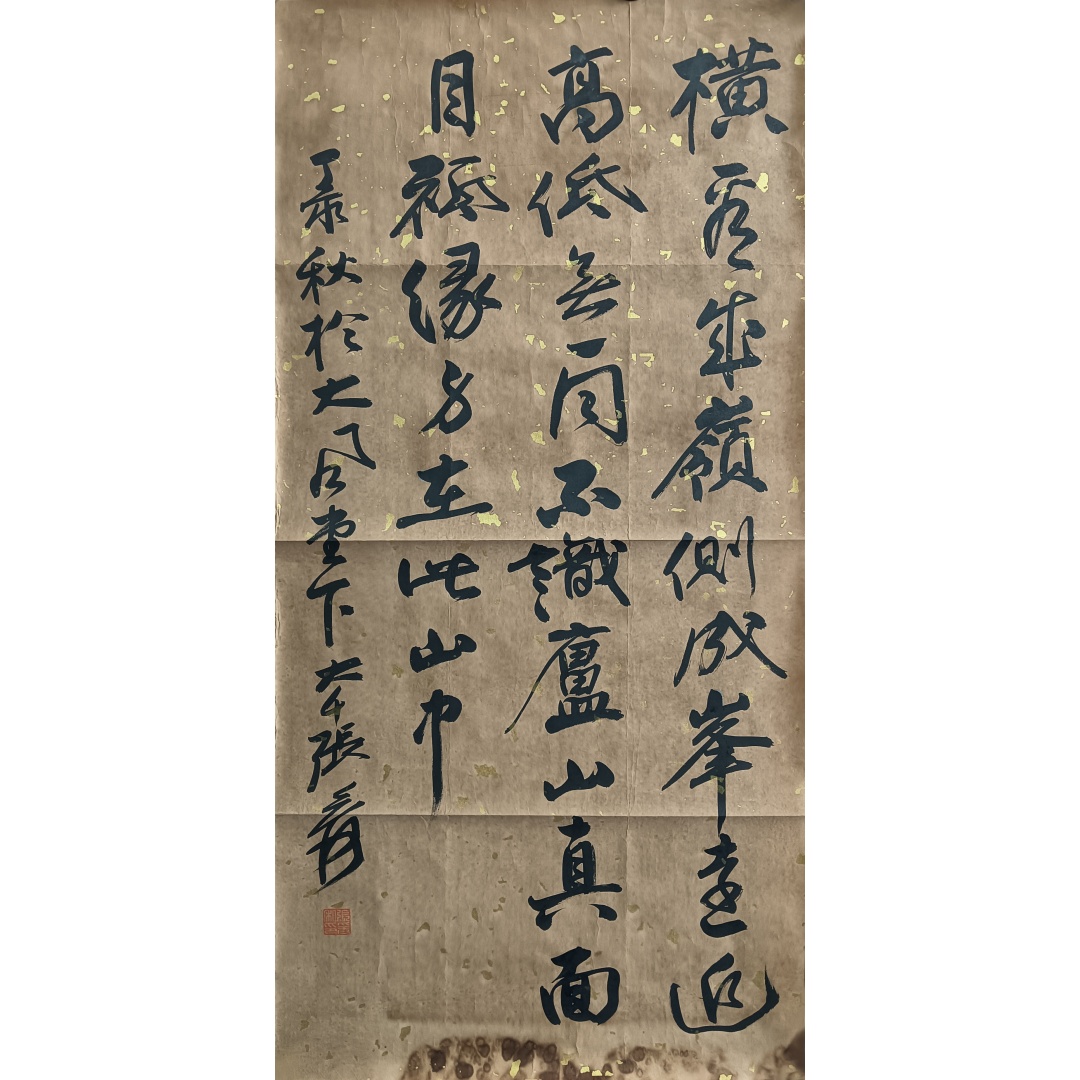 橫看成嶺側成峯遠近
高低無一同不識廬山真面
目祗緣身在此山中
丁亥秋於大風堂下大千張爰